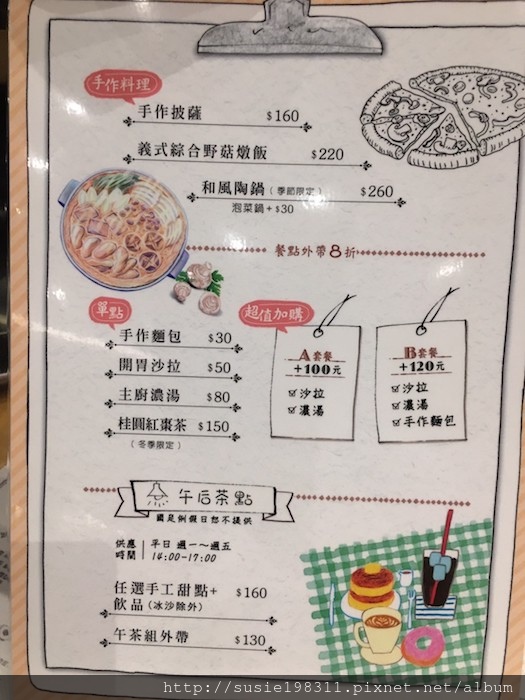 手作料理
手作披薩 $160
義式綜合野菇燉飯 $220
和風陶鍋（季節限定） $260
泡菜鍋+$30
餐點外帶8折
單點
手作麵包 $30
開胃沙拉 $50
主廚濃湯 $80
桂圓紅棗茶 $150
（冬季限定）
超值加購
A套餐
+100元
沙拉
濃湯
B套餐
+120元
沙拉
濃湯
手作麵包
午后茶點
國定例假日恕不提供
供應時間 平日 週一~週五
14:00-17:00
任選手工甜點+
飲品(冰沙除外) $160
午茶組外帶 $130
http://susie198311.pixnet.net/album